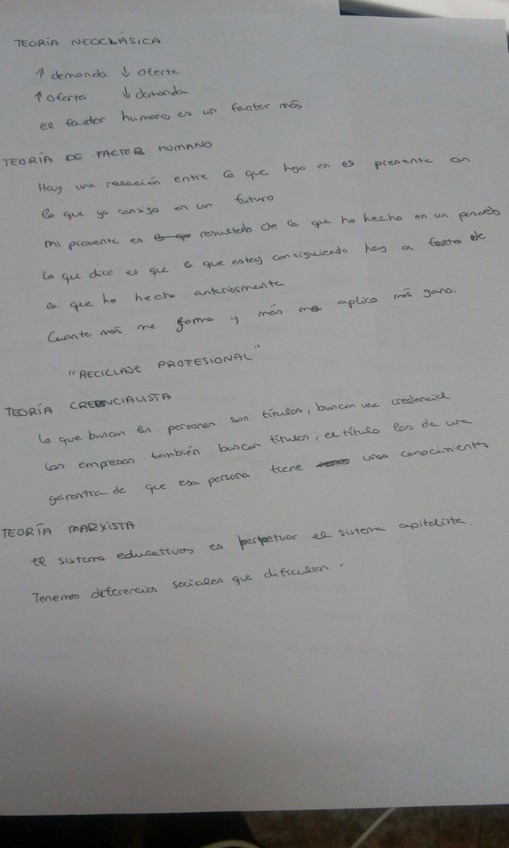 TEORÍA NEOCLÁSICA
↑ demanda ↓ oferta
↑ oferta ↓ demanda
el factor humano es un factor más
TEORÍA DE FACTOR HUMANO
Hay una relación entre lo que hago en el presente con
lo que yo consigo en un futuro
mi presente es resultado de lo que he hecho en un pasado
lo que dice es que lo que estoy consiguiendo hoy es fruto de
lo que he hecho anteriormente
Cuanto más me formo y más me aplico más gano.
"RECICLAJE PROFESIONAL"
TEORÍA CREENCIALISTA
lo que buscan las personas son títulos, buscan una credencial
las empresas también buscan títulos, el título les da una
garantía de que esa persona tiene unos conocimientos
TEORÍA MARXISTA
el sistema educativos es perpetuar el sistema capitalista.
Tenemos diferencias sociales que dificultan.